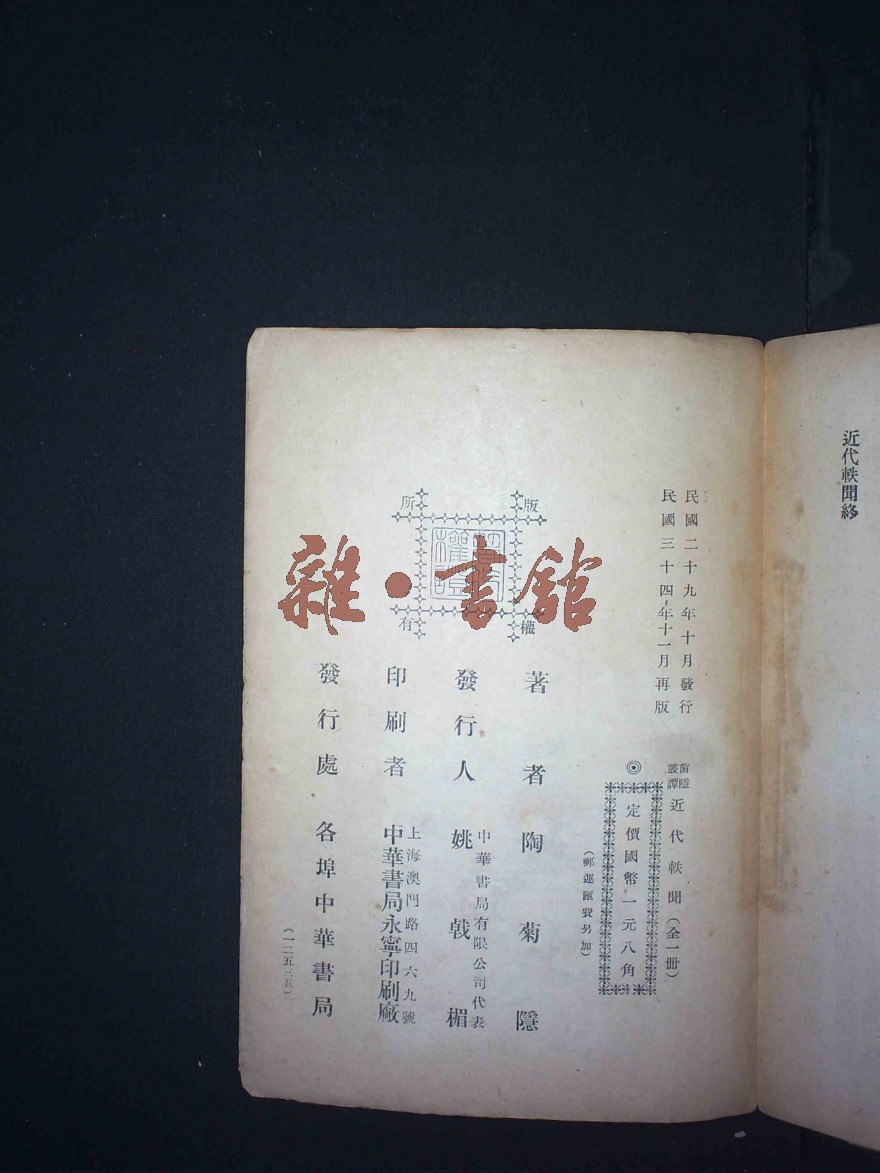 近代軼聞終
民國二十九年十月發行
民國三十四年十一月再版
菊隱叢譚
近代軼聞（全一冊）
◎定價國幣一元八角
（郵運匯費另加）
版權所有
著者 陶菊隱
發行人 中華書局有限公司代表
姚戟楣
印刷者 上海澳門路四六九號
中華書局永寧印刷廠
發行處 各埠中華書局
（一二五三五）
雜·書館